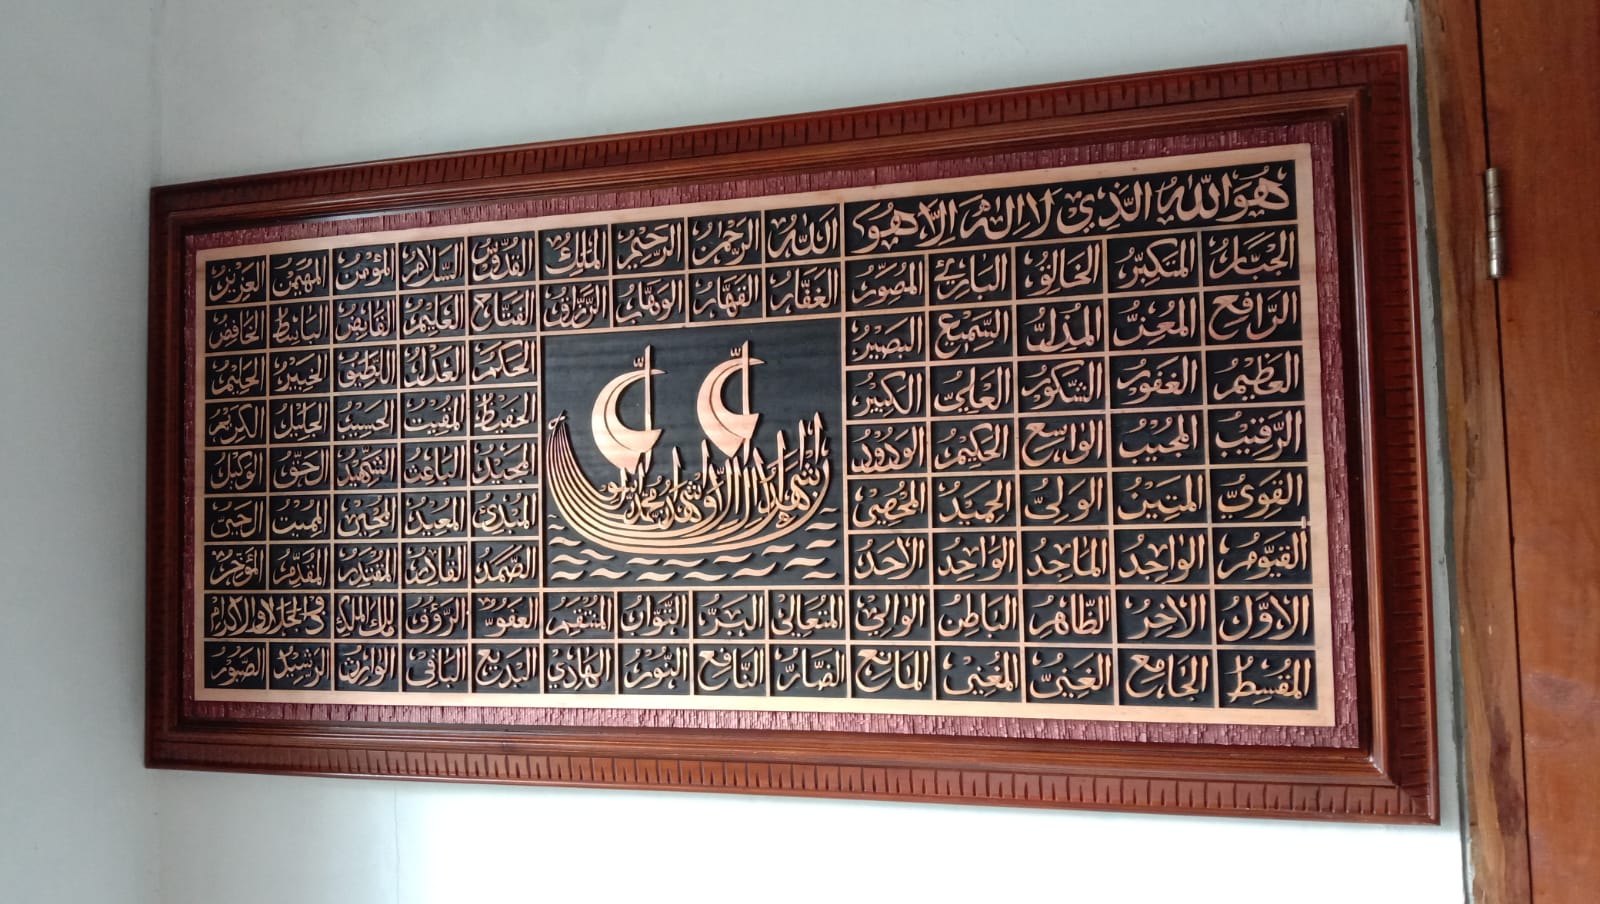 هُوَ اللّٰهُ الَّذِيْ لَا اِلٰهَ اِلَّا هُوَ اَللّٰهُ الرَّحْمٰنُ الرَّحِيْمُ الْمَلِكُ الْقُدُّوْسُ السَّلَامُ الْمُؤْمِنُ الْمُهَيْمِنُ الْعَزِيْزُ
الْجَبَّارُ الْمُتَكَبِّرُ الْخَالِقُ الْبَارِئُ الْمُصَوِّرُ الْغَفَّارُ الْقَهَّارُ الْوَهَّابُ الرَّزَّاقُ الْفَتَّاحُ الْعَلِيْمُ الْقَابِضُ الْبَاسِطُ الْخَافِضُ
الرَّافِعُ الْمُعِزُّ الْمُذِلُّ السَّمِيْعُ الْبَصِيْرُ الْحَكَمُ الْعَدْلُ اللَّطِيْفُ الْخَبِيْرُ الْحَلِيْمُ
الْعَظِيْمُ الْغَفُوْرُ الشَّكُوْرُ الْعَلِيُّ الْكَبِيْرُ الْحَفِيْظُ الْمُقِيْتُ الْحَسِيْبُ الْجَلِيْلُ الْكَرِيْمُ
الرَّقِيْبُ الْمُجِيْبُ الْوَاسِعُ الْحَكِيْمُ الْوَدُوْدُ الْمَجِيْدُ الْبَاعِثُ الشَّهِيْدُ الْحَقُّ الْوَكِيْلُ
الْقَوِيُّ الْمَتِيْنُ الْوَلِيُّ الْحَمِيْدُ الْمُحْصِيْ الْمُبْدِئُ الْمُعِيْدُ الْمُحْيِيْ الْمُمِيْتُ الْحَيُّ
الْقَيُّوْمُ الْوَاجِدُ الْمَاجِدُ الْوَاحِدُ الْأَحَدُ الصَّمَدُ الْقَادِرُ الْمُقْتَدِرُ الْمُقَدِّمُ الْمُؤَخِّرُ
الْأَوَّلُ الْآخِرُ الظَّاهِرُ الْبَاطِنُ الْوَالِيْ الْمُتَعَالِيْ الْبَرُّ التَّوَّابُ الْمُنْتَقِمُ الْعَفُوُّ الرَّؤُفُ مَالِكُ الْمُلْكِ ذُو الْجَلَالِ وَالْإِكْرَامِ
الْمُقْسِطُ الْجَامِعُ الْغَنِيُّ الْمُغْنِيْ الْمَانِعُ الضَّارُّ النَّافِعُ النُّوْرُ الْهَادِيْ الْبَدِيْعُ الْبَاقِيْ الْوَارِثُ الرَّشِيْدُ الصَّبُوْرُ